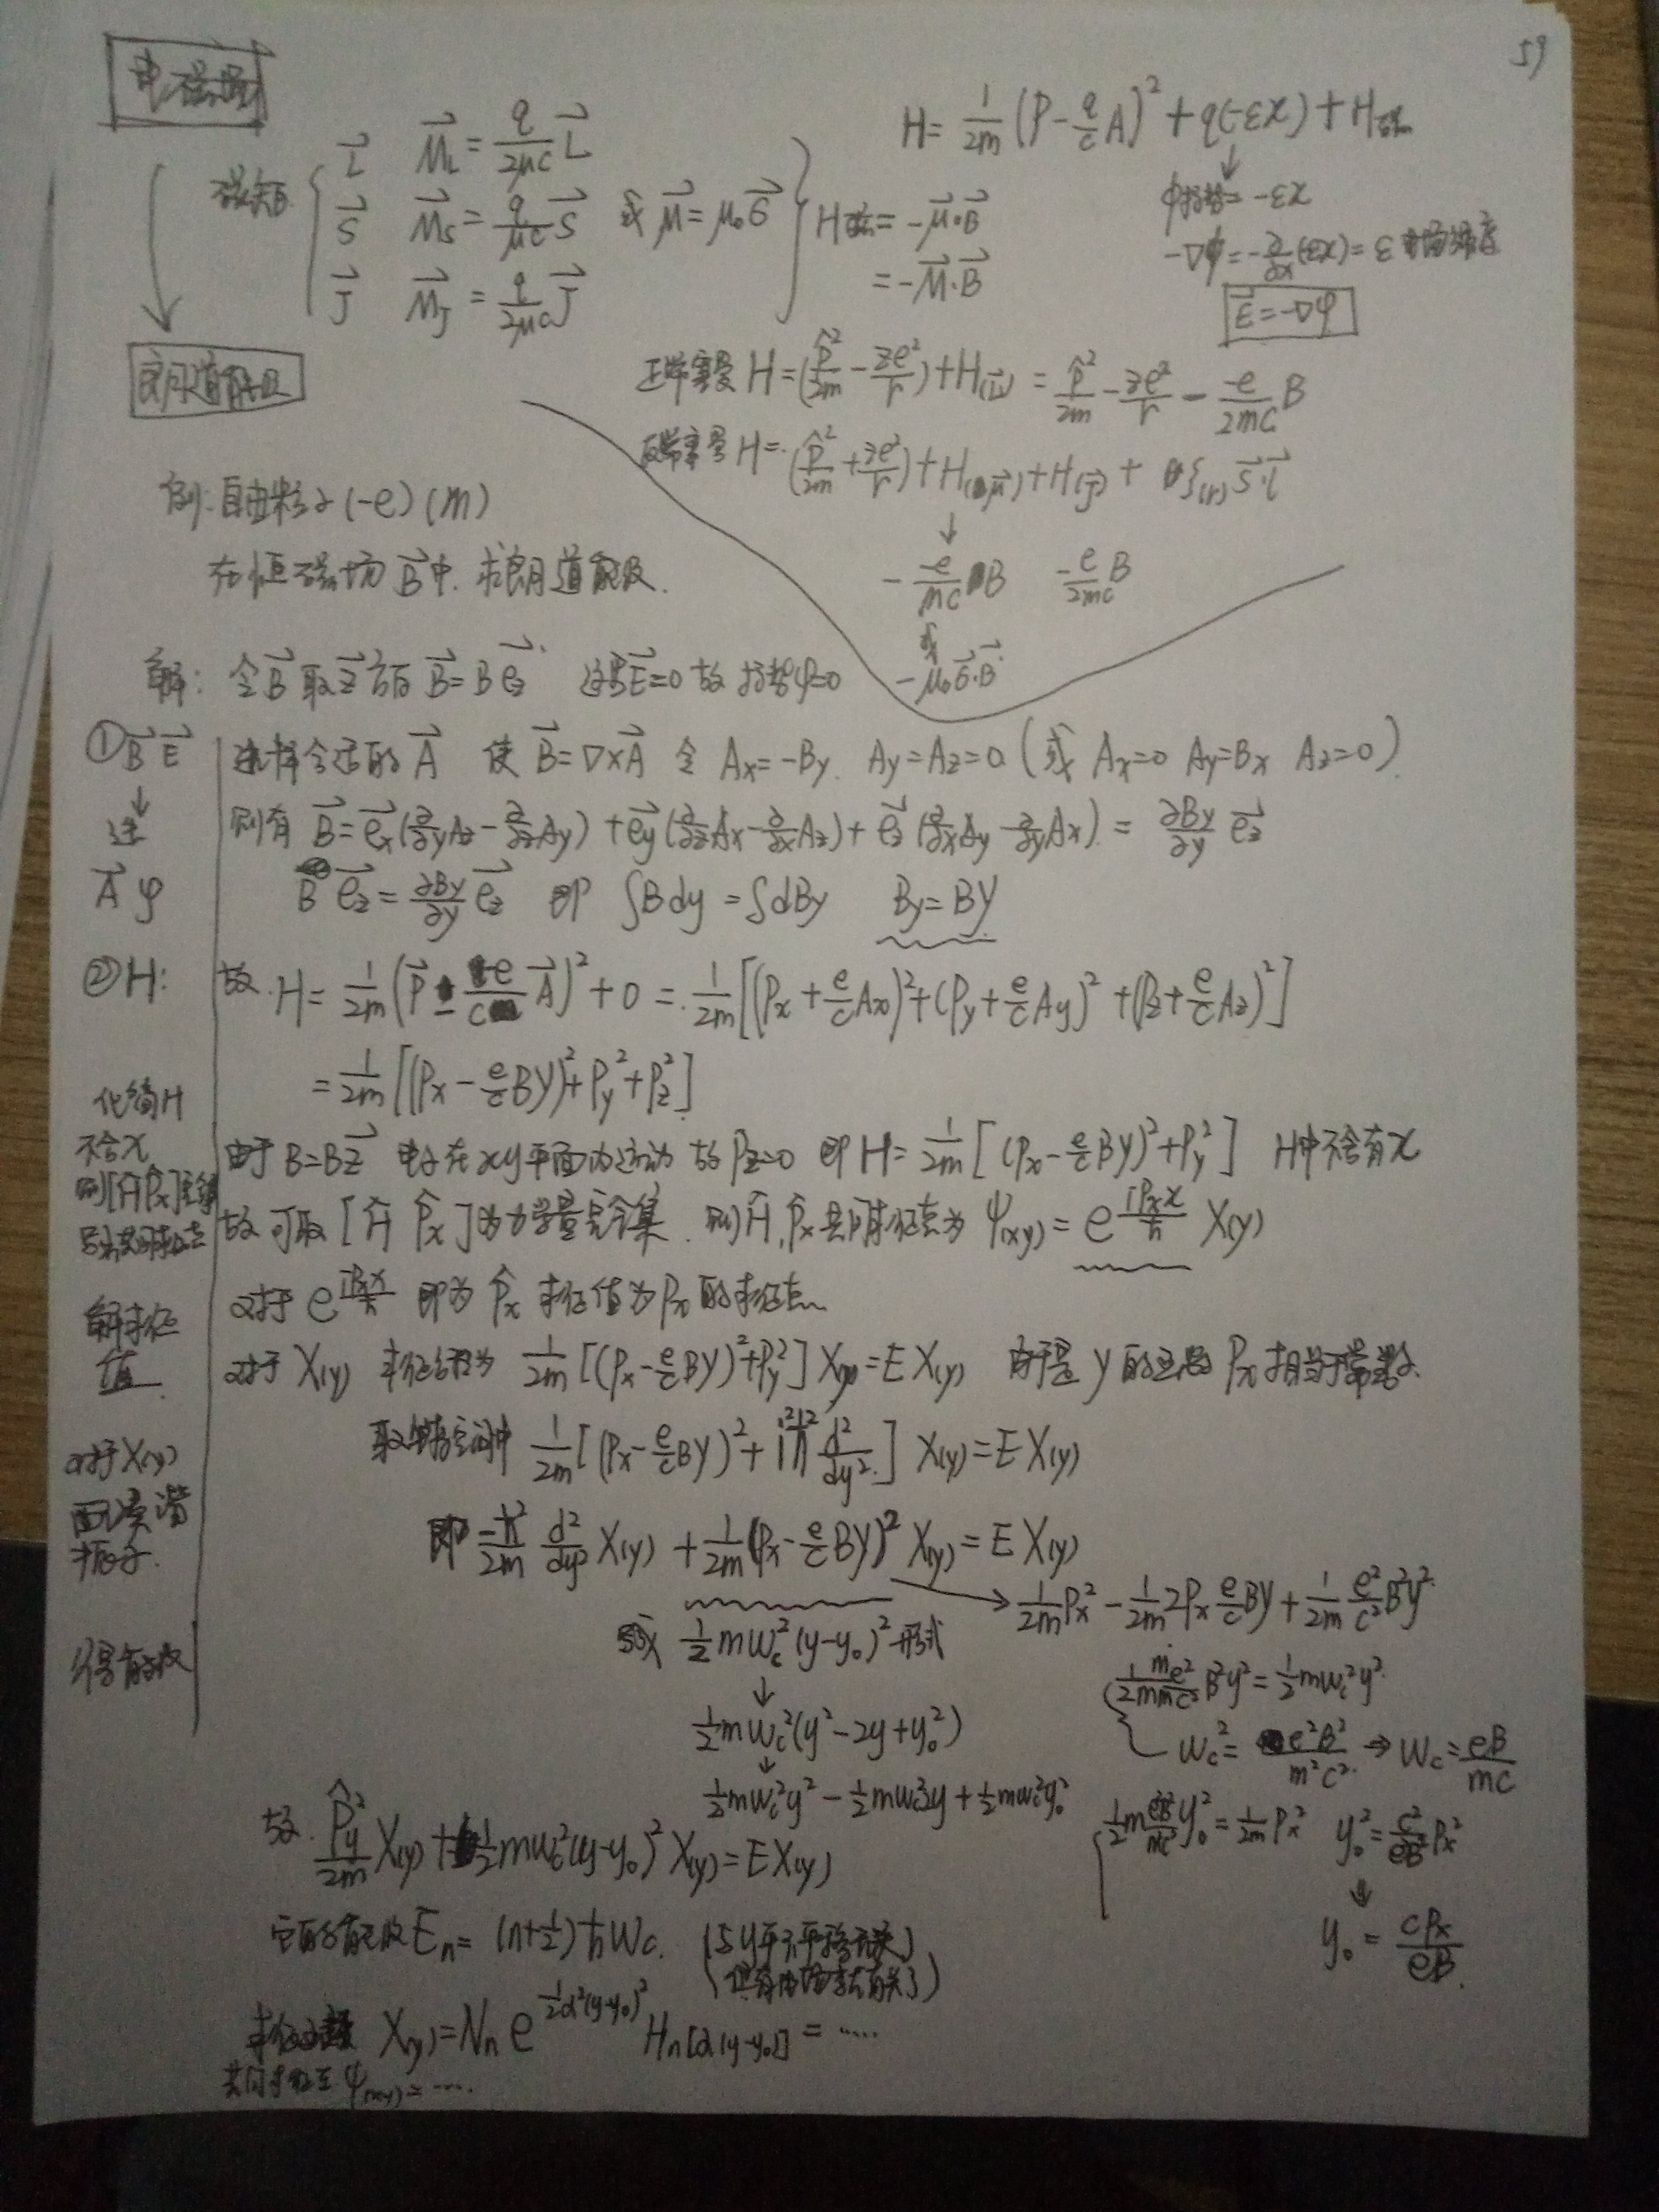 59
电磁场
H = 1/2m (P - q/c A)² + q(-εx) + H磁
磁矩 { L⃗ M⃗_L = q/2μc L⃗
S⃗ M⃗_S = q/μc S⃗ 或 μ⃗ = μ₀σ⃗
J⃗ M⃗_J = q/2μc J⃗
H磁 = -μ⃗·B⃗
= -M⃗·B⃗
↓
φ标势 = -εx
-∇φ = -∂/∂x(-εx) = ε 电场强度
E⃗ = -∇φ
朗道能级
正常塞曼 H = (p̂²/2m - ze²/r) + H(L⃗) = p̂²/2m - ze²/r - -e/2mc B
反常塞曼 H = (p̂²/2m + ze²/r) + H(μ⃗) + H(J⃗) + ξ(r) S⃗·l⃗
↓
- -e/mc B -e/2mc B
或
-μ₀σ⃗·B⃗
例: 自由粒子 (-e) (m)
在恒磁场 B⃗ 中. 求朗道能级.
解: 令 B⃗ 取 z⃗ 方向 B⃗ = B e⃗z 这里 E⃗=0 故 标势 φ=0
① B⃗ E⃗
↓
选
A⃗ φ
选择合适的 A⃗ 使 B⃗ = ∇×A⃗ 令 Ax = -By. Ay = Az = 0 (或 Ax=0 Ay=Bx Az=0).
则有 B⃗ = e⃗x(∂/∂y Az - ∂/∂z Ay) + e⃗y(∂/∂z Ax - ∂/∂x Az) + e⃗z(∂/∂x Ay - ∂/∂y Ax) = ∂By/∂y e⃗z
B e⃗z = ∂By/∂y e⃗z 即 ∫B dy = ∫dBy By = BY
② H:
故. H = 1/2m (P⃗ - -e/c A⃗)² + 0 = 1/2m [(Px + e/c Ax)² + (Py + e/c Ay)² + (Pz + e/c Az)²]
= 1/2m [(Px - e/c BY)² + Py² + Pz²]
化简H
不含x
由于 B = Bz⃗ 电子在xy平面内运动 故 Pz=0 即 H = 1/2m [(Px - e/c BY)² + Py²] H中不含有x
故 可取 [Ĥ P̂x] 为力学量完全集. 则 Ĥ, P̂x 共同本征态为 ψ(xy) = e^(iPx x/ħ) X(y)
对于 e^(iPx x/ħ) 即为 P̂x 本征值为 Px 的本征态
解本征
值
对于 X(y) 本征方程为 1/2m [(Px - e/c BY)² + Py²] X(y) = E X(y) 由于是 y 的 Px 相当于常数.
1/2m [(Px - e/c BY)² + i²ħ² d²/dy²] X(y) = E X(y)
对于X(y)
配成谐
振子.
即 -ħ²/2m d²/dy² X(y) + 1/2m (Px - e/c BY)² X(y) = E X(y)
→ 1/2m Px² - 1/2m 2Px e/c BY + 1/2m e²/c² B²y²
½mωc²(y-y₀)² 形式
↓
½mωc²(y² - 2y + y₀²)
↓
½mωc²y² - ½mωc²2y + ½mωc²y₀²
1/2m me²/mc² B²y² = ½mωc²y²
ωc² = e²B²/m²c² → ωc = eB/mc
½m e²B²/m²c² y₀² = 1/2m Px² y₀² = c²/e²B² Px²
↓
y₀ = cPx/eB
得能级
故. P̂y²/2m X(y) + ½mωc²(y-y₀)² X(y) = E X(y)
它的能级 En = (n+½)ħωc.
X(y) = Nn e^(-½α²(y-y₀)²) Hn[α(y-y₀)] = ……
共同本征态 ψ(xy) = ….